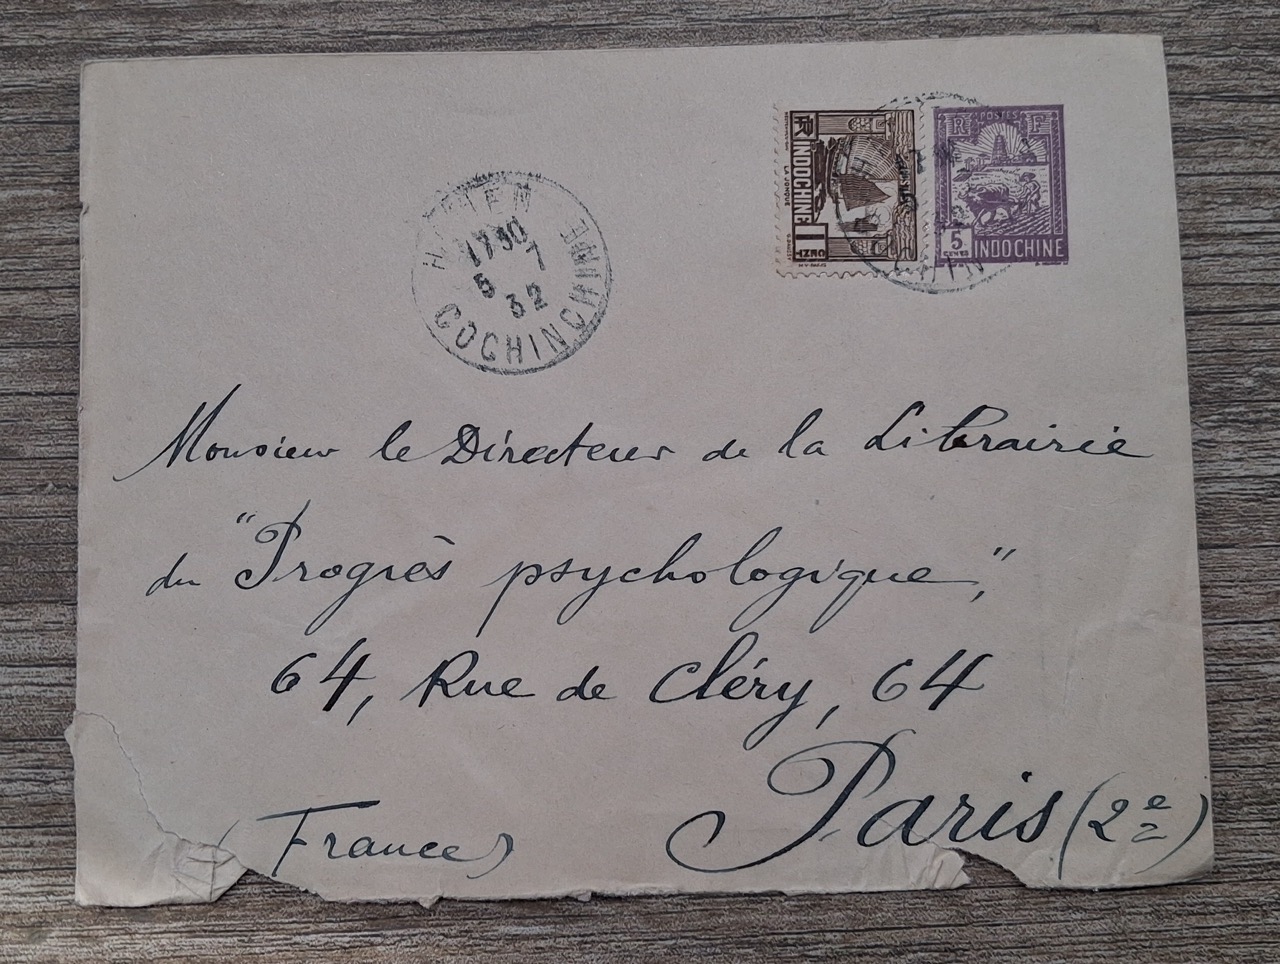 RF
INDOCHINE
LA JONQUE
1
CENT
POSTES
R F
5
CENTS
INDOCHINE
HATIEN
17 30
5 7
32
COCHINCHINE
Monsieur le Directeur de la Librairie
du "Progrès psychologique",
64, Rue de Cléry, 64
Paris (2e)
(France)